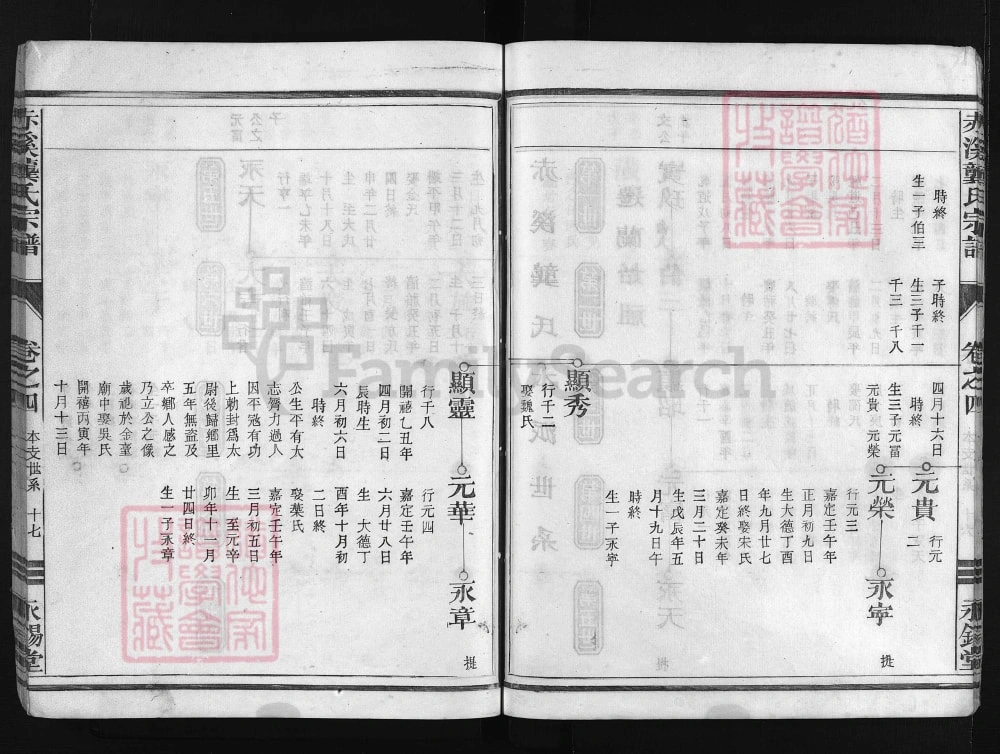 赤溪龔氏宗譜
卷之四
永錫堂
時終
生一子伯三
子時終
生三子千一
千三 千八
四月十六日
時終
生三子元富
元貴 元榮
元貴
行元
二
元榮
行元三
嘉定壬午年
正月初九日
生大德丁酉
年九月廿七
日終娶宋氏
嘉定癸未年
三月二十日
生戊辰年五
月十九日午
時終
生一子永寧
永寧
提
顯秀
行千二
娶魏氏
顯靈
行千八
開禧乙丑年
四月初二日
辰時生
六月初六日
時終
公生平有太
志膂力過人
因平冦有功
上勅封爲太
尉後歸鄉里
五年無盗及
卒鄉人感之
乃立公之像
歲祀於金臺
廟中娶吳氏
開禧丙寅年
十月十三日
元華
行元四
嘉定壬午年
六月廿八日
生 大德丁
酉年十月初
二日終
娶葉氏
嘉定壬午年
三月初五日
生 至元辛
卯年十二月
廿四日終
生一子永章
永章
提
赤溪龔氏宗譜
卷之四
本支世系
十七
永錫堂
FamilySearch